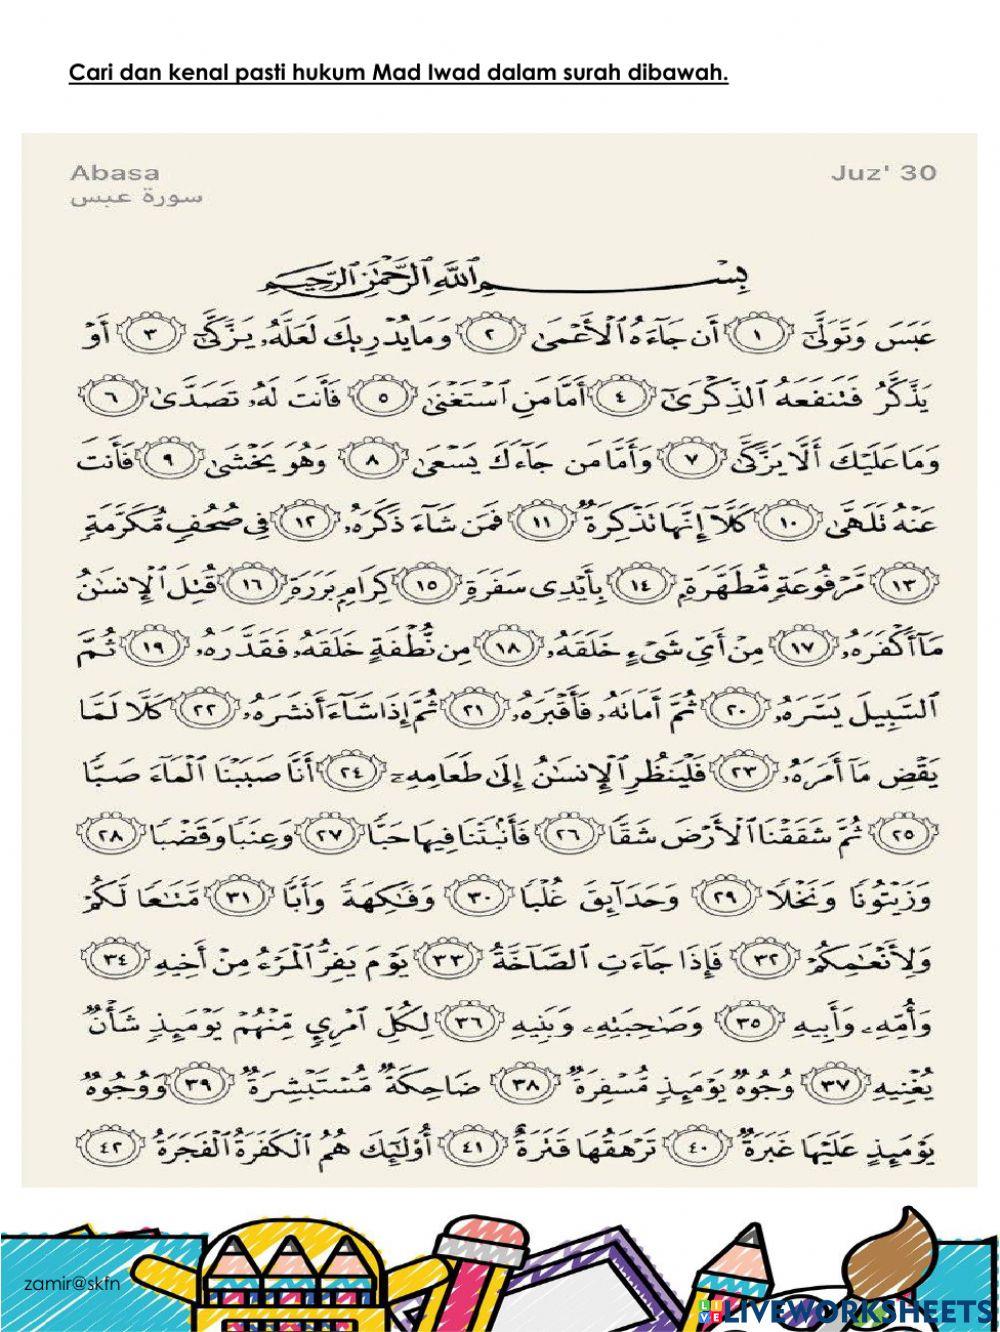 Cari dan kenal pasti hukum Mad Iwad dalam surah dibawah.
Abasa
Juz' 30
سورة عبس
بِسْمِ ٱللَّهِ ٱلرَّحْمَٰنِ ٱلرَّحِيمِ
عَبَسَ وَتَوَلَّىٰٓ ١ أَن جَآءَهُ ٱلْأَعْمَىٰ ٢ وَمَا يُدْرِيكَ لَعَلَّهُۥ يَزَّكَّىٰٓ ٣ أَوْ
يَذَّكَّرُ فَتَنفَعَهُ ٱلذِّكْرَىٰٓ ٤ أَمَّا مَنِ ٱسْتَغْنَىٰ ٥ فَأَنتَ لَهُۥ تَصَدَّىٰ ٦
وَمَا عَلَيْكَ أَلَّا يَزَّكَّىٰ ٧ وَأَمَّا مَن جَآءَكَ يَسْعَىٰ ٨ وَهُوَ يَخْشَىٰ ٩ فَأَنتَ
عَنْهُ تَلَهَّىٰ ١٠ كَلَّآ إِنَّهَا تَذْكِرَةٌ ١١ فَمَن شَآءَ ذَكَرَهُۥ ١٢ فِى صُحُفٍ مُّكَرَّمَةٍ
١٣ مَّرْفُوعَةٍ مُّطَهَّرَةٍۭ ١٤ بِأَيْدِى سَفَرَةٍ ١٥ كِرَامٍۭ بَرَرَةٍ ١٦ قُتِلَ ٱلْإِنسَٰنُ
مَآ أَكْفَرَهُۥ ١٧ مِنْ أَىِّ شَىْءٍ خَلَقَهُۥ ١٨ مِن نُّطْفَةٍ خَلَقَهُۥ فَقَدَّرَهُۥ ١٩ ثُمَّ
ٱلسَّبِيلَ يَسَّرَهُۥ ٢٠ ثُمَّ أَمَاتَهُۥ فَأَقْبَرَهُۥ ٢١ ثُمَّ إِذَا شَآءَ أَنشَرَهُۥ ٢٢ كَلَّا لَمَّا
يَقْضِ مَآ أَمَرَهُۥ ٢٣ فَلْيَنظُرِ ٱلْإِنسَٰنُ إِلَىٰ طَعَامِهِۦٓ ٢٤ أَنَّا صَبَبْنَا ٱلْمَآءَ صَبًّا
٢٥ ثُمَّ شَقَقْنَا ٱلْأَرْضَ شَقًّا ٢٦ فَأَنۢبَتْنَا فِيهَا حَبًّا ٢٧ وَعِنَبًا وَقَضْبًا ٢٨
وَزَيْتُونًا وَنَخْلًا ٢٩ وَحَدَآئِقَ غُلْبًا ٣٠ وَفَٰكِهَةً وَأَبًّا ٣١ مَّتَٰعًا لَّكُمْ
وَلِأَنْعَٰمِكُمْ ٣٢ فَإِذَا جَآءَتِ ٱلصَّآخَّةُ ٣٣ يَوْمَ يَفِرُّ ٱلْمَرْءُ مِنْ أَخِيهِ ٣٤
وَأُمِّهِۦ وَأَبِيهِ ٣٥ وَصَٰحِبَتِهِۦ وَبَنِيهِ ٣٦ لِكُلِّ ٱمْرِئٍ مِّنْهُمْ يَوْمَئِذٍ شَأْنٌ
يُغْنِيهِ ٣٧ وُجُوهٌ يَوْمَئِذٍ مُّسْفِرَةٌ ٣٨ ضَاحِكَةٌ مُّسْتَبْشِرَةٌ ٣٩ وَوُجُوهٌ
يَوْمَئِذٍ عَلَيْهَا غَبَرَةٌ ٤٠ تَرْهَقُهَا قَتَرَةٌ ٤١ أُو۟لَٰٓئِكَ هُمُ ٱلْكَفَرَةُ ٱلْفَجَرَةُ ٤٢
zamir@skfn
LIVE LIVEWORKSHEETS